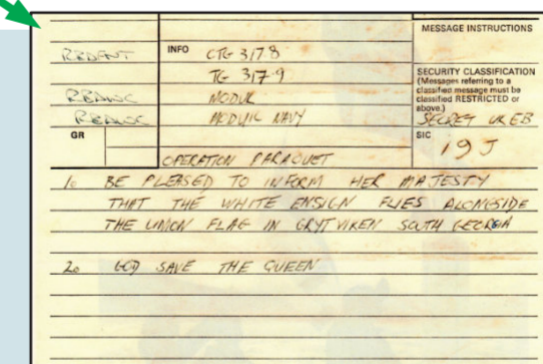 MESSAGE INSTRUCTIONS
INFO CTG 317.8
TG 317.9
SECURITY CLASSIFICATION
(Messages referring to a
classified message must be
classified RESTRICTED or
above.)
MODUK
MODUK NAVY
SECRET UK EB
GR
SIC
19J
OPERATION PARAQUET
1. BE PLEASED TO INFORM HER MAJESTY
THAT THE WHITE ENSIGN FLIES ALONGSIDE
THE UNION FLAG IN GRYTVIKEN SOUTH GEORGIA
2. GOD SAVE THE QUEEN